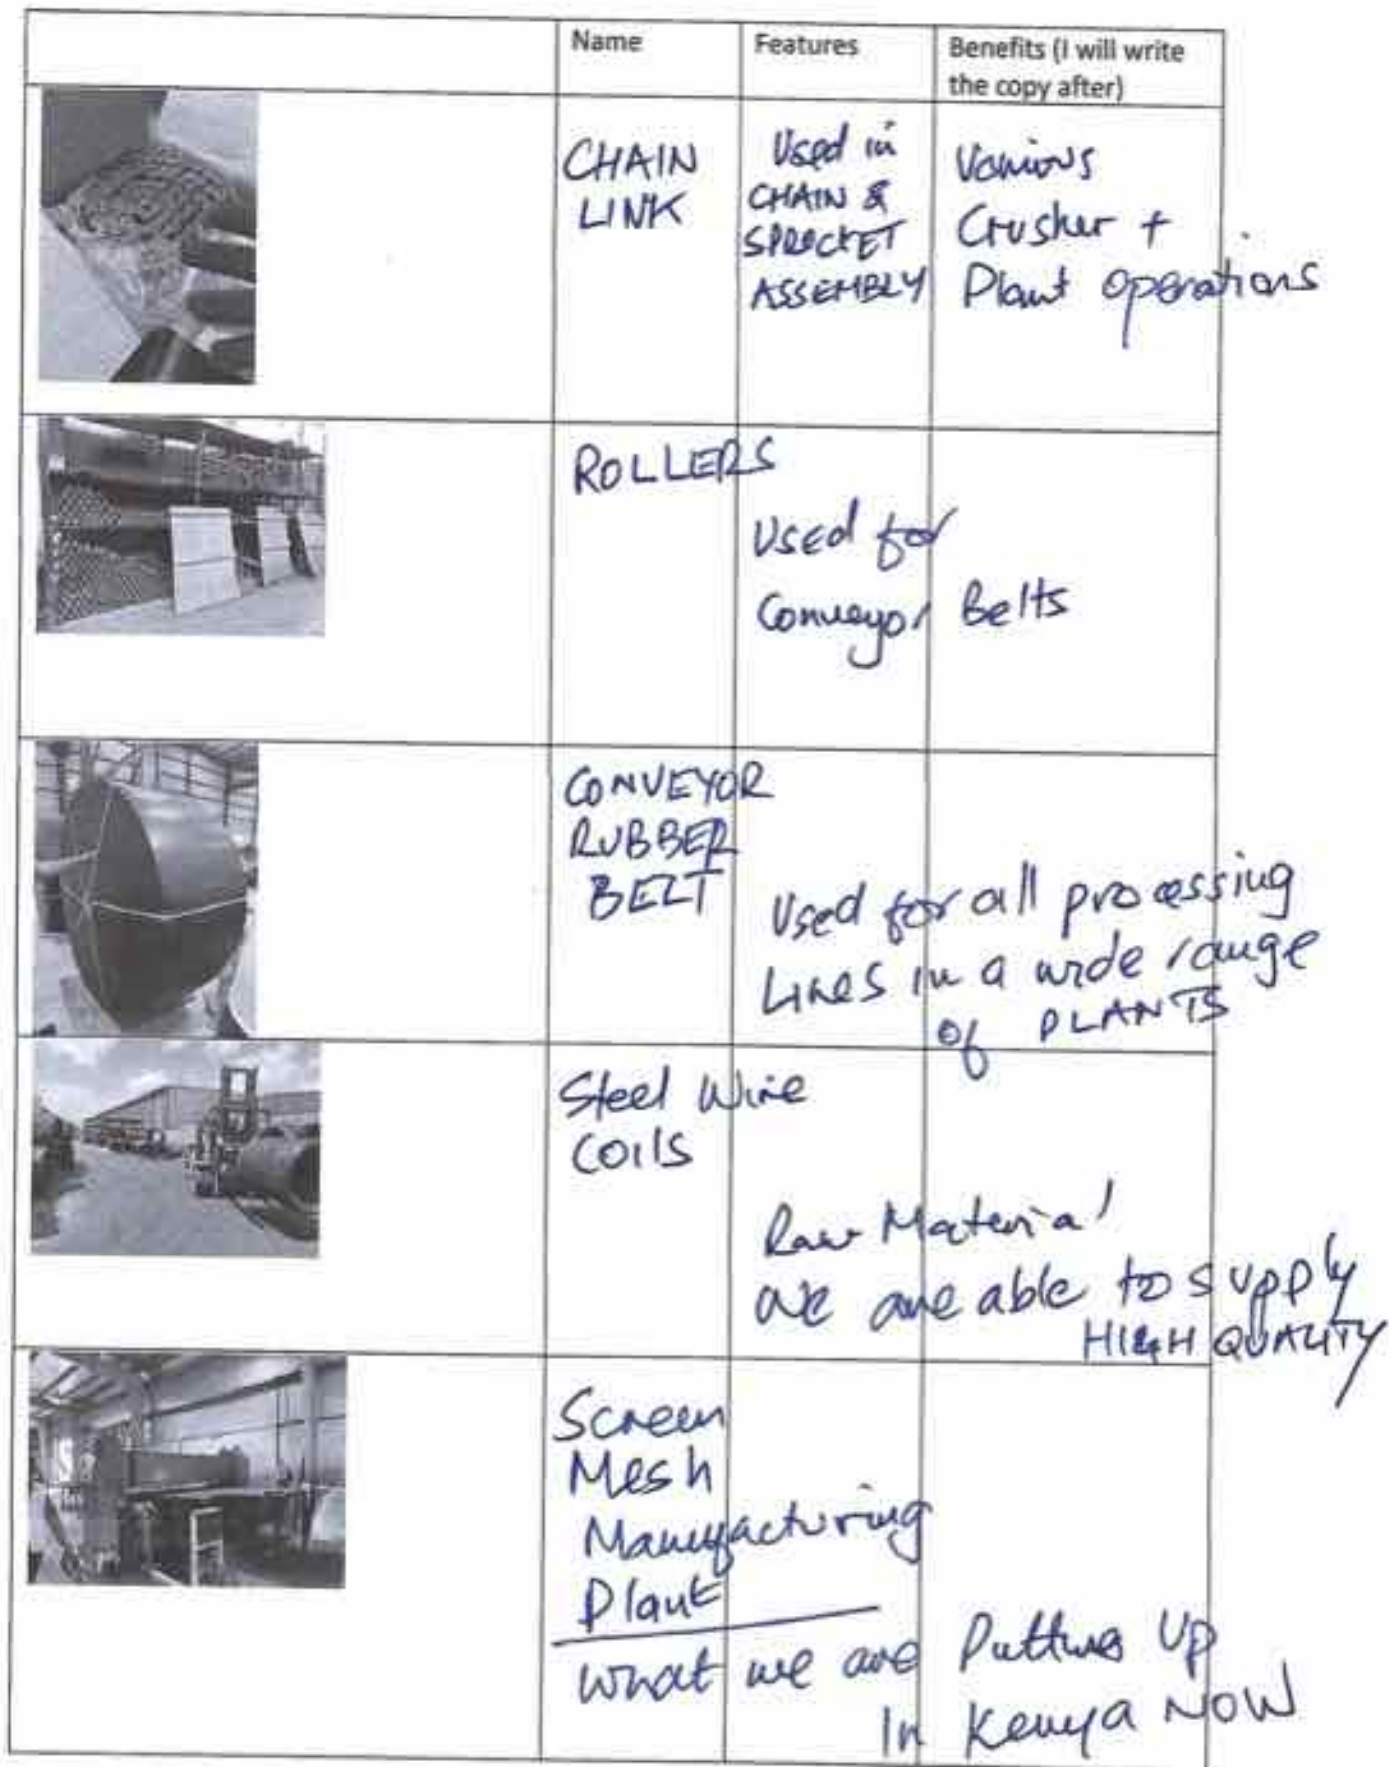 Name
Features
Benefits (I will write
the copy after)
CHAIN
LINK
Used in
CHAIN &
SPROCKET
ASSEMBLY
Various
Crusher +
Plant operations
ROLLERS
Used for
Conveyor Belts
CONVEYOR
RUBBER
BELT
Used for all processing
Lines in a wide range
of PLANTS
Steel Wire
COILS
Raw Material
We are able to supply
HIGH QUALITY
Screen
Mesh
Manufacturing
Plant
What we are Putting Up
In Kenya NOW